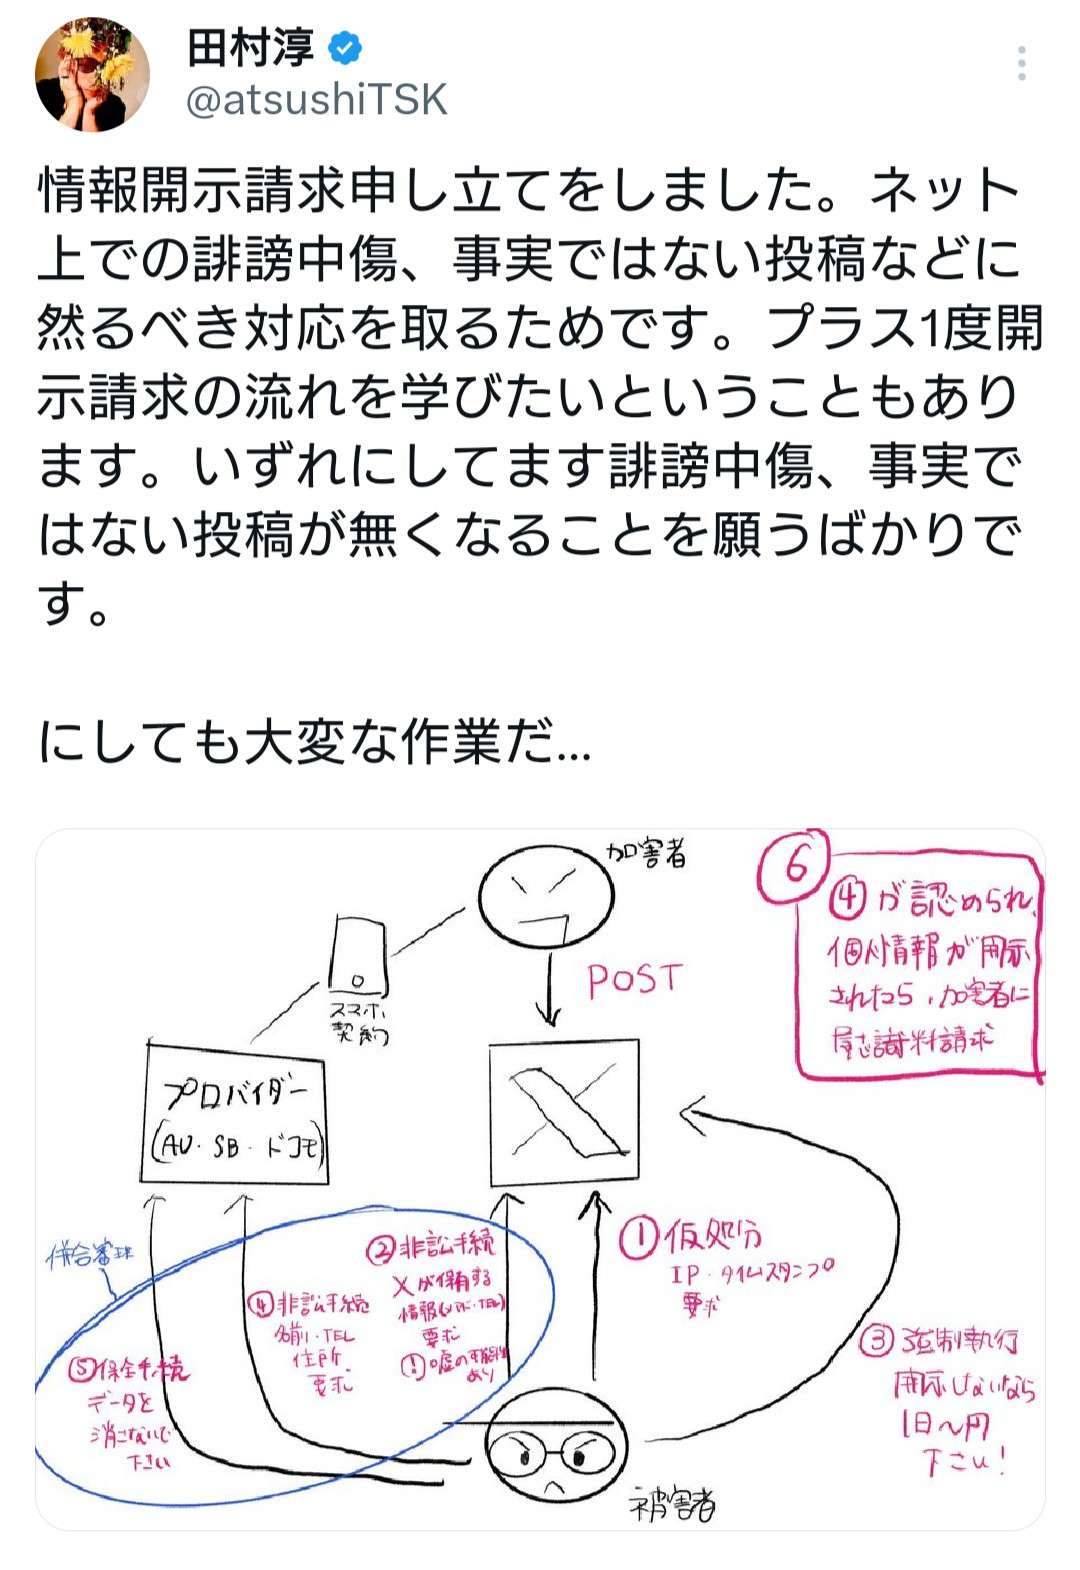 田村淳
@atsushiTSK
情報開示請求申し立てをしました。ネット
上での誹謗中傷、事実ではない投稿などに
然るべき対応を取るためです。プラス1度開
示請求の流れを学びたいということもあり
ます。いずれにしてます誹謗中傷、事実で
はない投稿が無くなることを願うばかりで
す。
にしても大変な作業だ...
加害者
POST
スマホ
契約
プロバイダー
(AU・SB・ドコモ)
X
⑥
④が認められ、
個人情報が開示
されたら、加害者に
慰謝料請求
①仮処分
IP・タイムスタンプ
要求
②非訟手続
Xが保有する
情報(メアド・TEL)
要求
(!)嘘の可能性
あり
③強制執行
開示しないなら
1日〜円
下さい!
④非訟手続
名前・TEL
住所
要求
⑤保全手続
データを
消さないで
下さい
併合審理
被害者